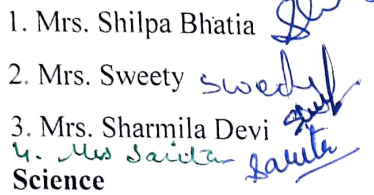 1. Mrs. Shilpa Bhatia
2. Mrs. Sweety Sweety
3. Mrs. Sharmila Devi
4. Mrs Sarita Sarita
Science